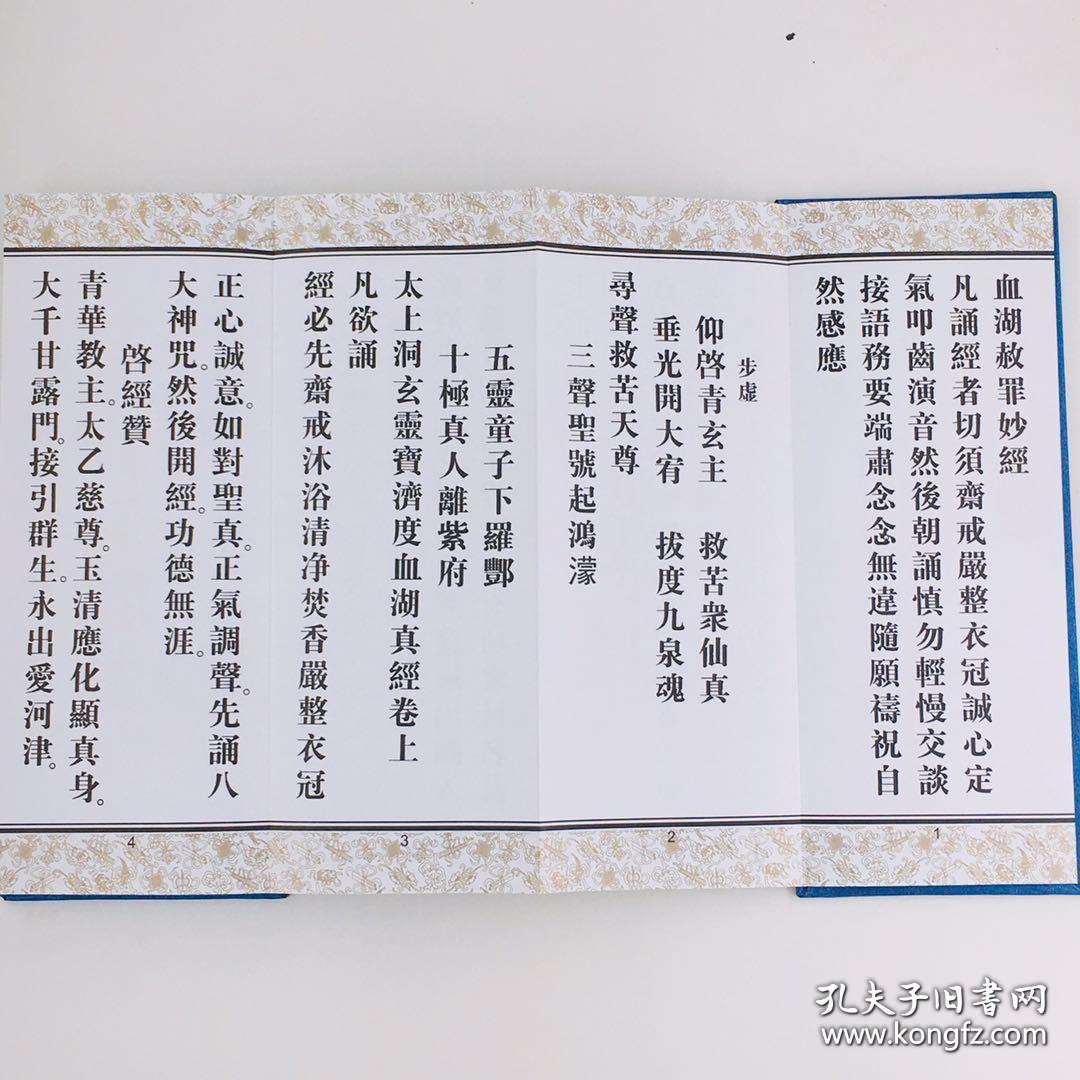 血湖赦罪妙經
凡誦經者切須齋戒嚴整衣冠誠心定
氣叩齒演音然後朝誦慎勿輕慢交談
接語務要端肅念念無違隨願禱祝自
然感應
1
步虛
仰啓青玄主 救苦衆仙真
垂光開大宥 拔度九泉魂
尋聲救苦天尊
三聲聖號起鴻濛
2
五靈童子下羅酆
十極真人離紫府
太上洞玄靈寶濟度血湖真經卷上
凡欲誦
經必先齋戒沐浴清净焚香嚴整衣冠
3
正心誠意。如對聖真。正氣調聲。先誦八
大神咒。然後開經。功德無涯。
啓經贊
青華教主。太乙慈尊。玉清應化顯真身。
大千甘露門。接引群生。永出愛河津。
4
孔夫子旧书网
www.kongfz.com